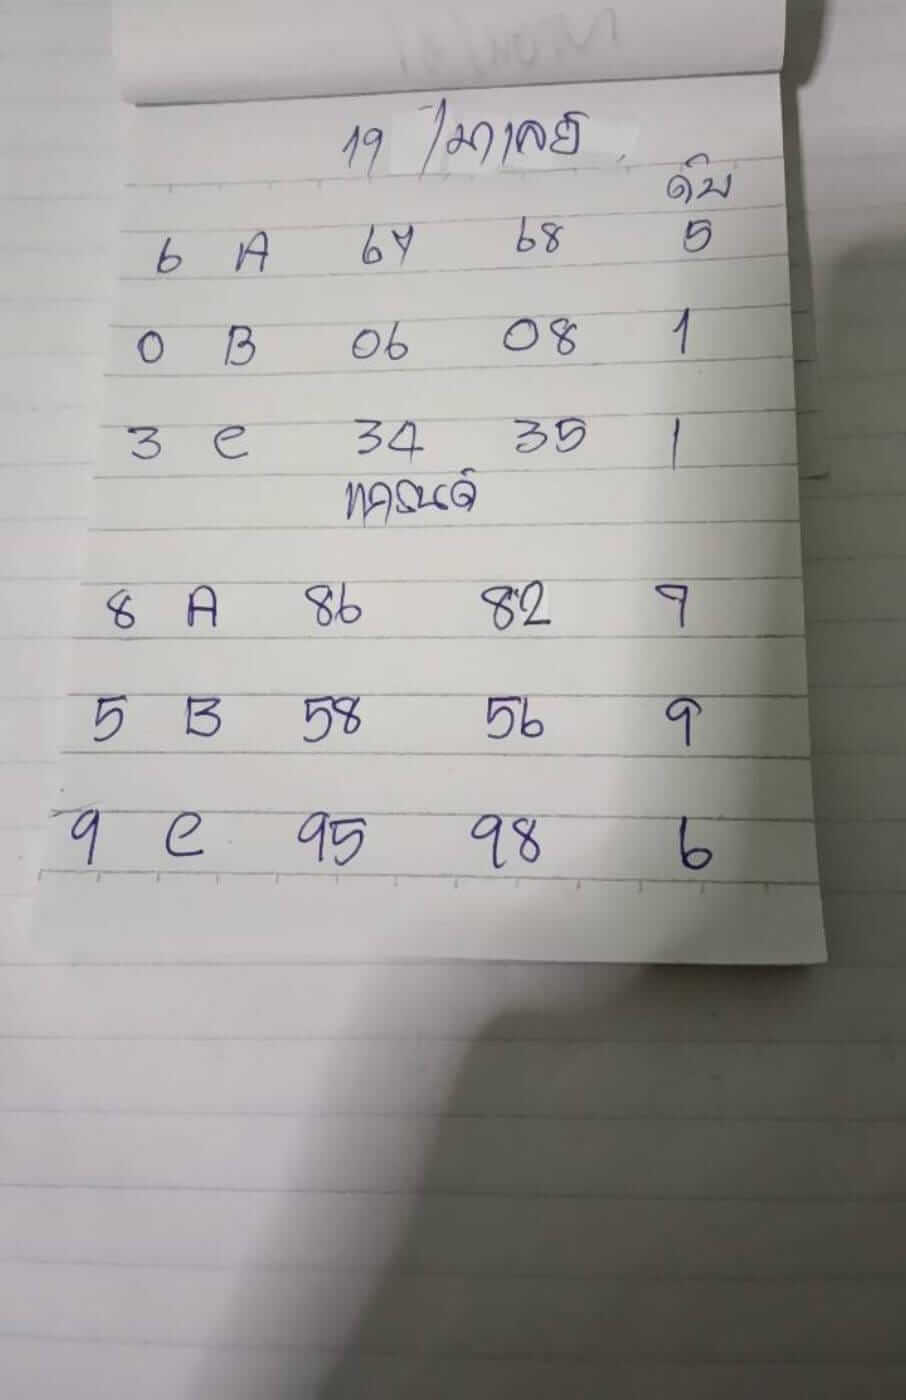 19 /มาเลย์
ดับ
6 A 67 68 5
0 B 06 08 1
3 C 34 35 1
8 A 86 82 9
5 B 58 56 9
9 C 95 98 6